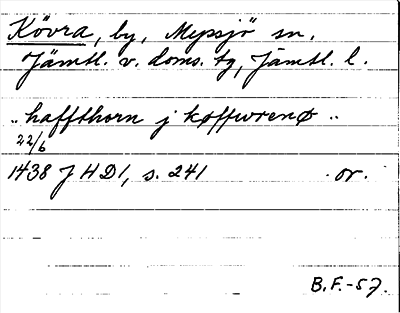 Kövra, by, Myssjö sn,
Jämtl. v. doms. tg, Jämtl. l.
"haffthorn j køffwrenø"
22/6
1438 JHD1, s. 241 or.
B.F.-57.